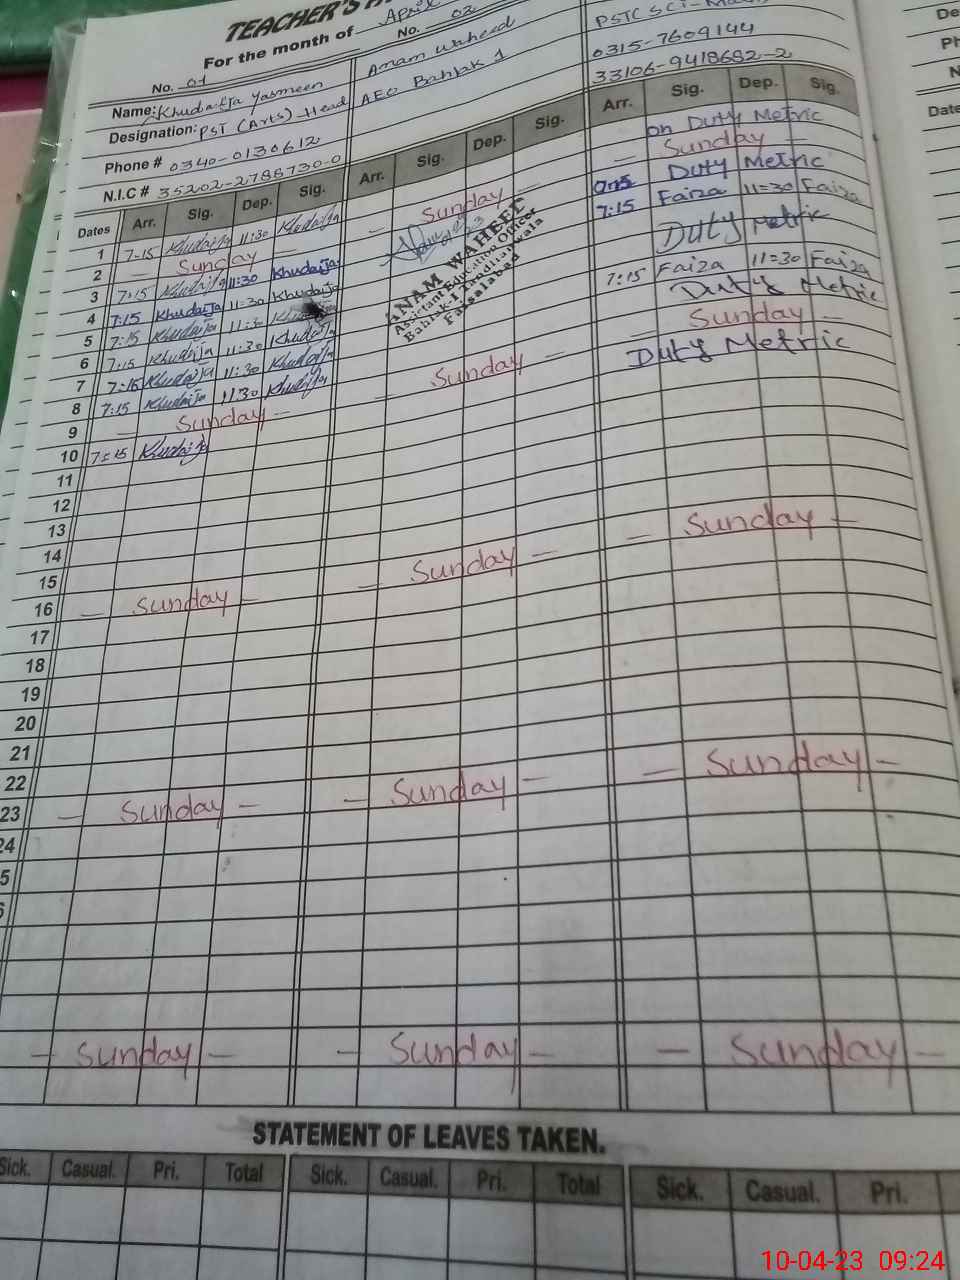 TEACHER'S
For the month of April
No. 01
No. 02
Name: Khudaija Yasmeen
Anam Waheed
Designation: PST (Arts) Head
AEO Bahlak 1
PST (SCI-
Phone # 0340-0130612
0315-7609144
N.I.C # 35202-2788730-0
33106-9418682-2
Dates Arr. Sig. Dep. Sig. Arr. Sig. Dep. Sig. Arr. Sig. Dep. Sig.
1 7-15 Khudaija 11:30 Khudaija on Duty Metric
2 — Sunday — Sunday — — Sunday —
3 7:15 Khudaija 11:30 Khudaija Duty Metric
4 7:15 Khudaija 11=30 Khudaija 7:15 Faiza 11=30 Faiza
5 7:15 Khudaija 11:30 Duty Metric
6 7:15 Khudaija 11:30 Khudaija 7:15 Faiza 11=30 Faiza
7 7:15 Khudaija 11:30 Khudaija Duty Metric
8 7:15 Khudaija 11.30 Khudaija
9 — Sunday — — Sunday — Sunday —
10 7:15 Khudaija Duty Metric
ANAM WAHEED
Assistant Education Officer
Bahlak-I Jandiaanwala
Faisalabad
11
12
13
14
15
16 — Sunday — — Sunday — — Sunday —
17
18
19
20
21
22
23 — Sunday — — Sunday — — Sunday —
24
5
6
— Sunday — — Sunday — — Sunday —
STATEMENT OF LEAVES TAKEN.
Sick. Casual. Pri. Total Sick. Casual. Pri. Total Sick. Casual. Pri.
De
Ph
N
Date
10-04-23 09:24